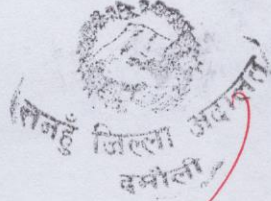 तनहुँ जिल्ला अदालत
दमौली